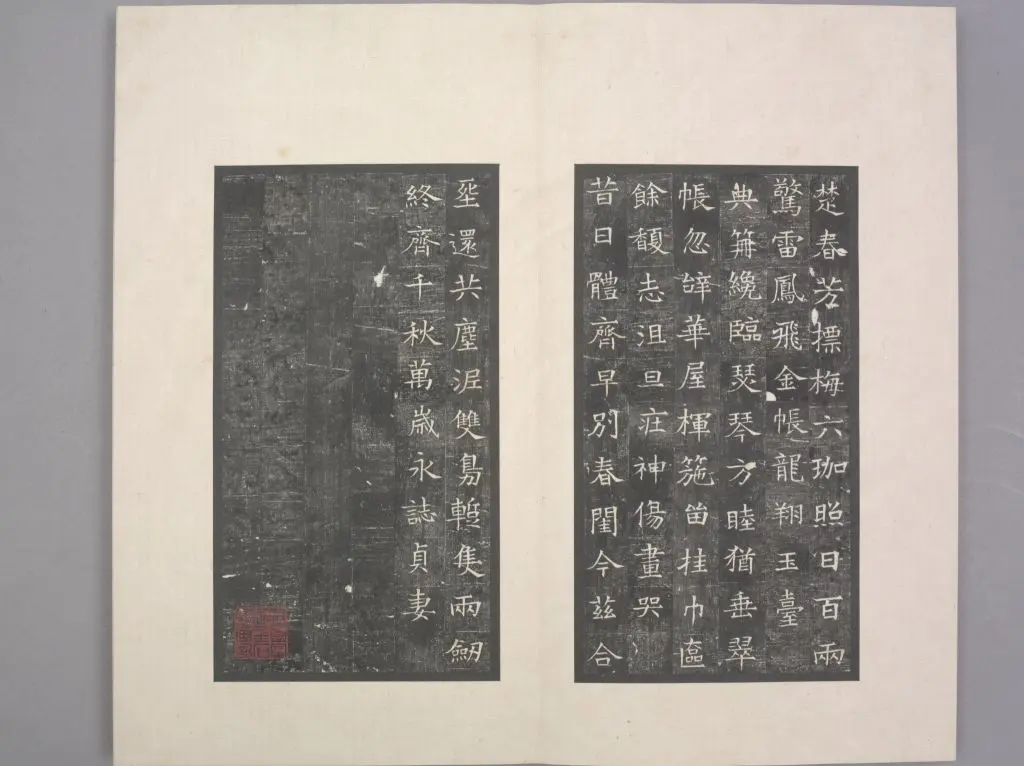 楚春芳摽梅六珈照日百兩
驚雷鳳飛金帳龍翔玉臺
典冊纔臨瑟琴方睦猶垂翠
帳忽辭華屋楎箷留挂巾匲
餘馥志沮旦疰神傷晝哭
昔日體齊早別春閨今茲合
塟還共塵泥雙鳧蹔隻兩劒
終齊千秋萬歲永誌貞妻